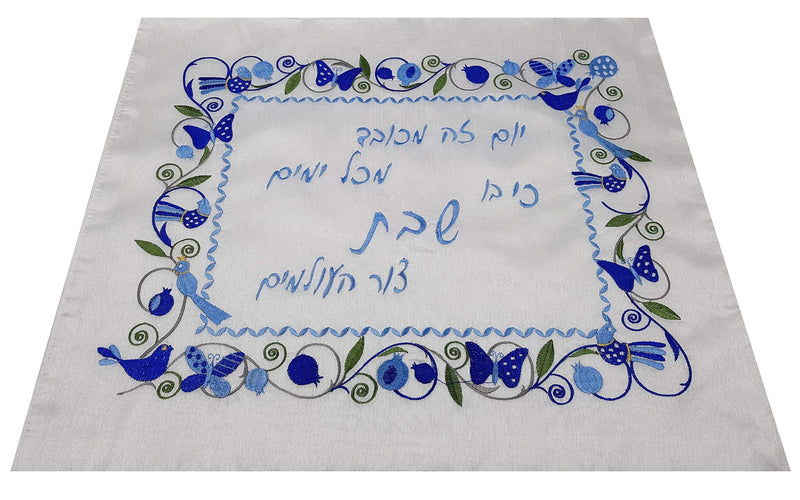 יום זה מכובד
מכל ימים
כי בו
שבת
צור העולמים